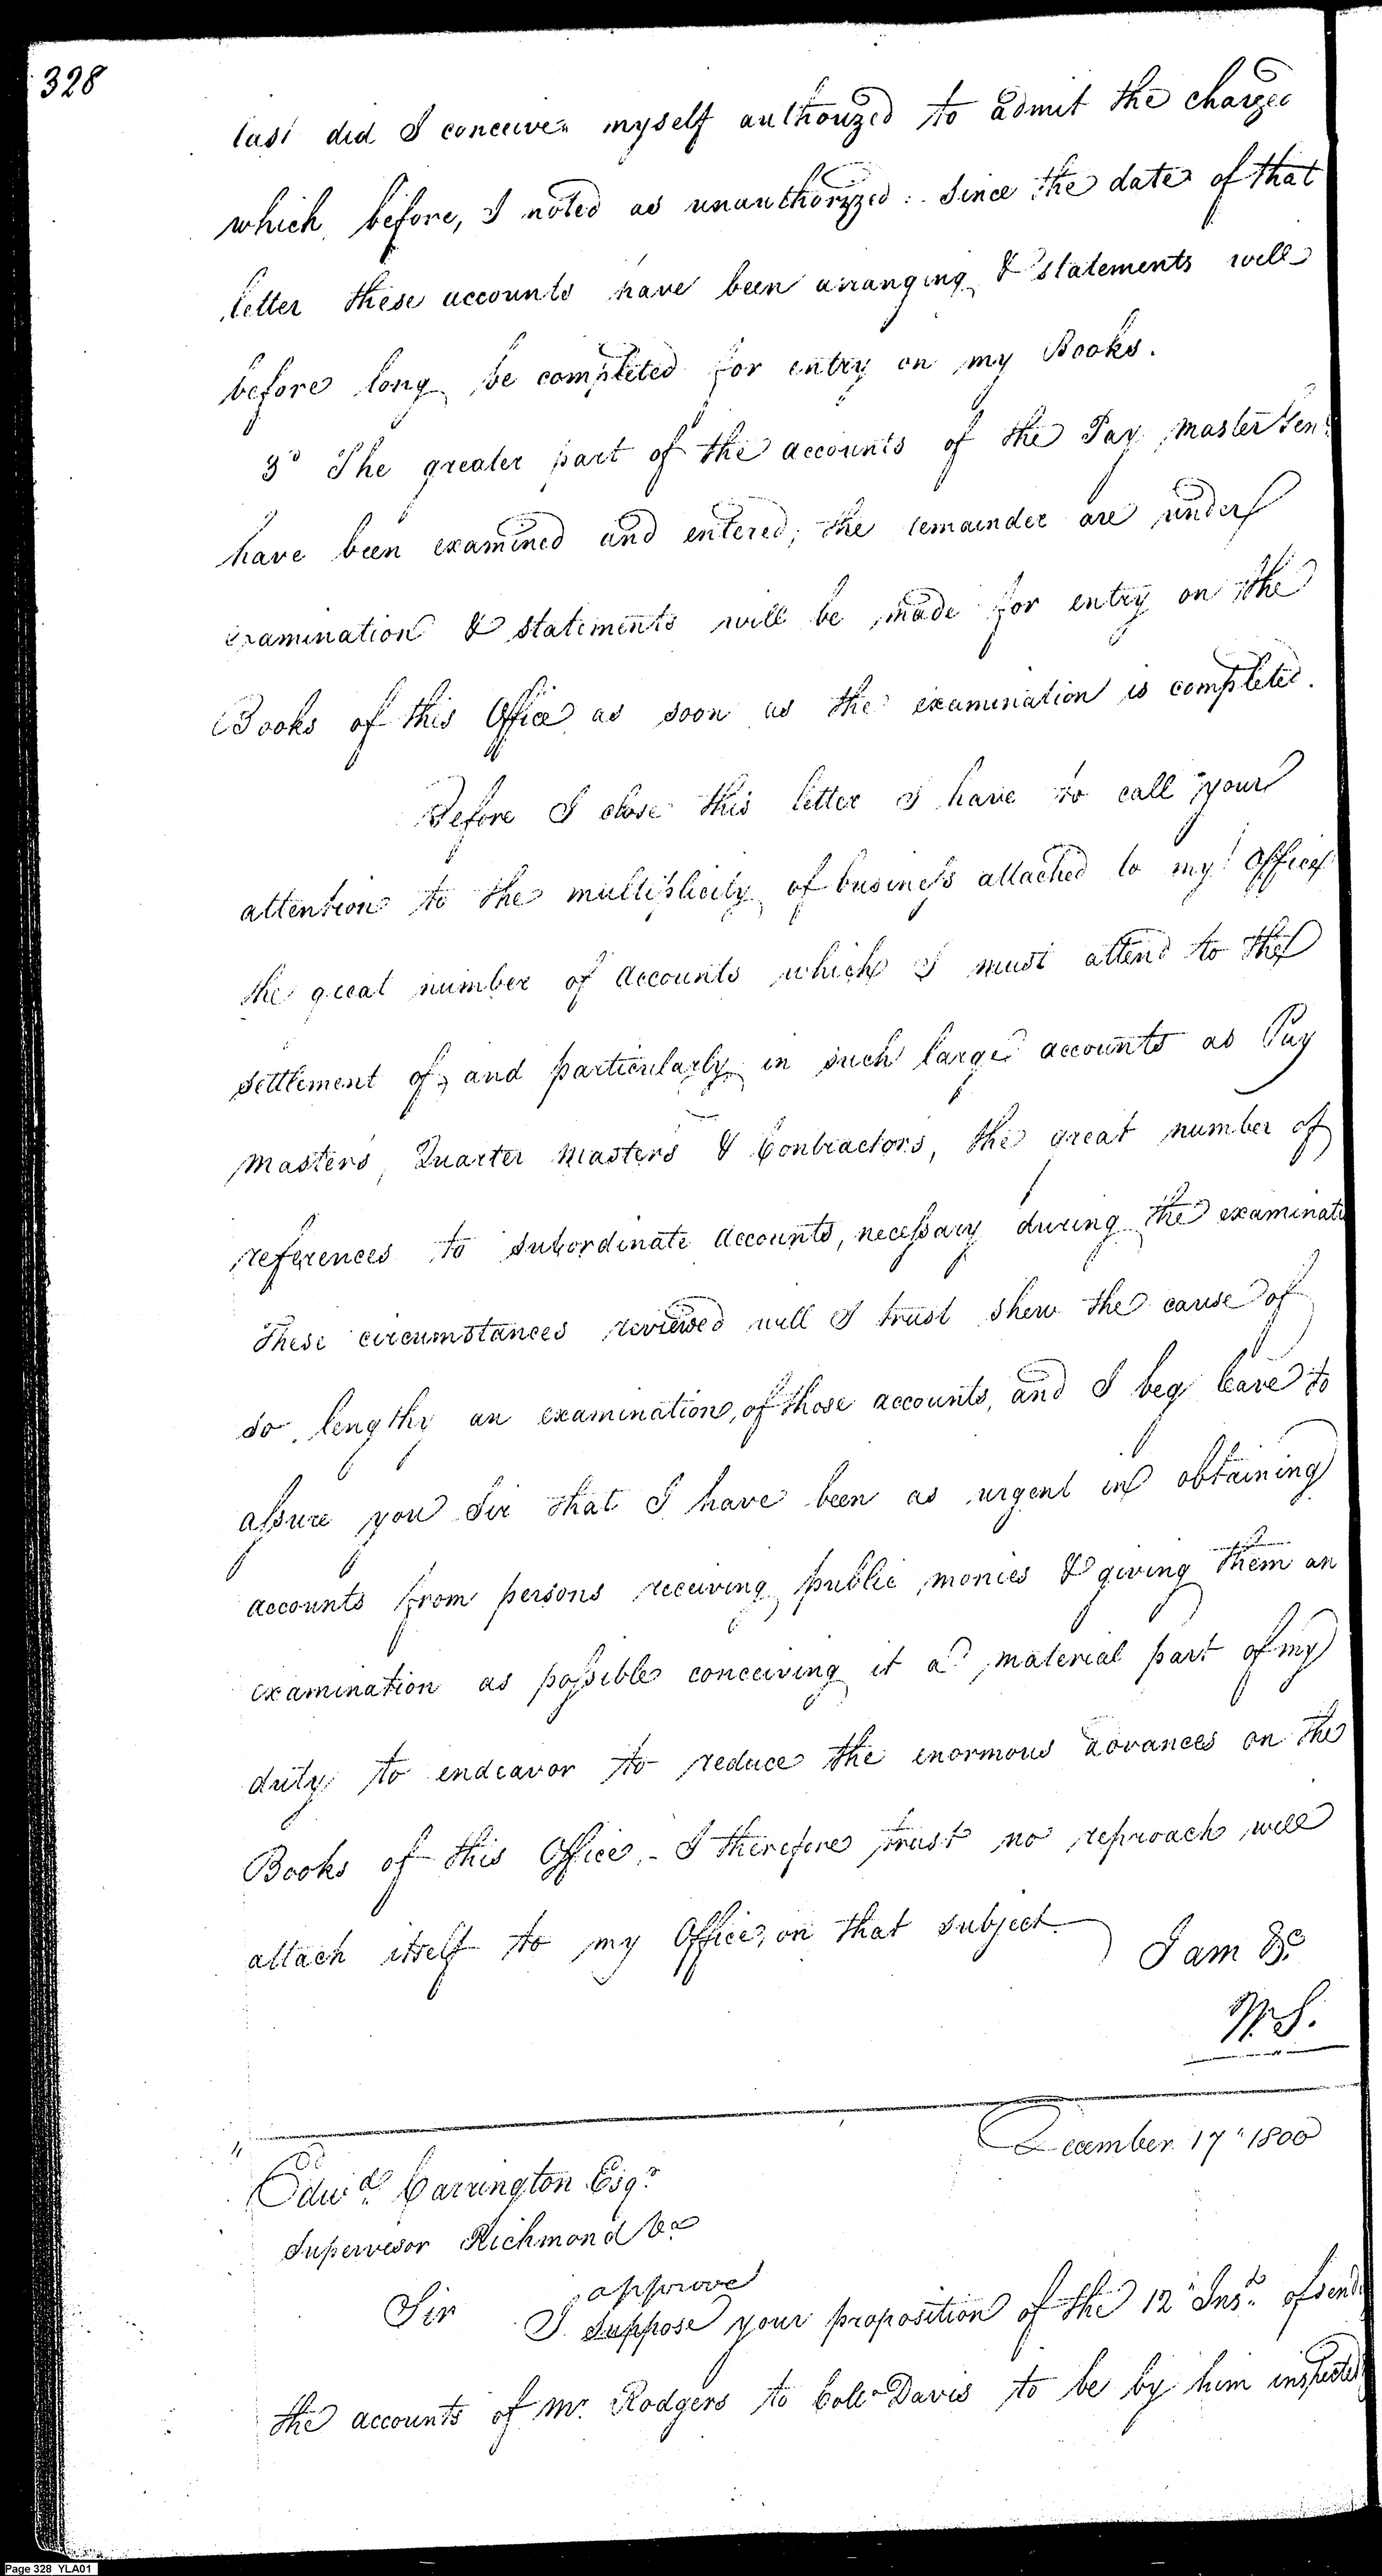 328
last did I conceive myself authorized to admit the charges
which, before, I noted as unauthorized: Since the date of that
letter these accounts have been arranging & statements will
before long be completed for entry on my Books.
3d The greater part of the accounts of the Pay Master Genl.
have been examined and entered; the remainder are under
examination & statements will be made for entry on the
Books of this Office as soon as the examination is completed.
Before I close this letter I have to call your
attention to the multiplicity of business attached to my Office
the great number of accounts which I must attend to the
settlement of, and particularly in such large accounts as Pay
masters, Quarter masters & Contractors, the great number of
references to subordinate accounts, necessary during the examinati
These circumstances reviewed will I trust shew the cause of
so lengthy an examination, of those accounts, and I beg leave to
assure you Sir that I have been as urgent in obtaining
accounts from persons receiving public monies & giving them an
examination as possible conceiving it a material part of my
duty to endeavor to reduce the enormous advances on the
Books of this Office, - I therefore trust no reproach will
attach itself to my Office, on that subject
I am &c.
W. S.
December 17" 1800
Edwd. Carrington Esqr.
Supervisor Richmond Va
approve
Sir I Suppose your proposition of the 12" Inst. of send
the accounts of Mr. Rodgers to Colo. Davis to be by him inspected
Page 328 YLA01